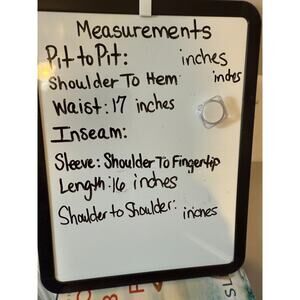 Measurements
Pit to Pit: inches
Shoulder To Hem: inches
Waist: 17 inches
Inseam:
Sleeve: Shoulder To Fingertip
Length: 16 inches
Shoulder to Shoulder: inches